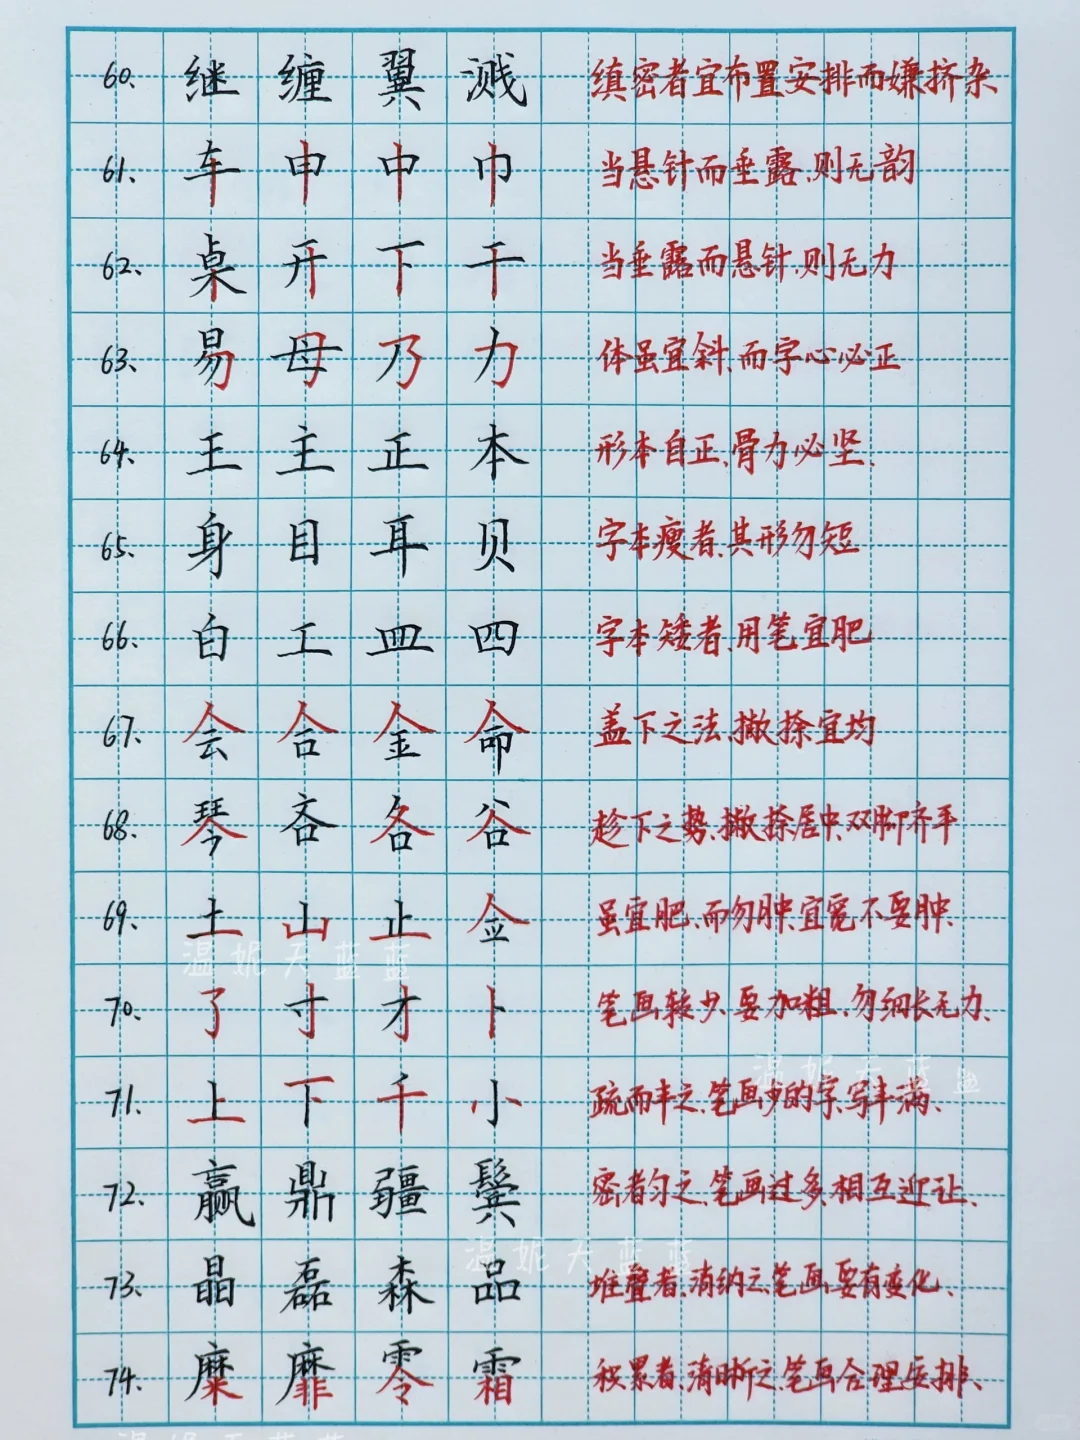 60、 继 缠 翼 溅 缜密者宜布置安排而嫌挤杂
61、 车 申 中 巾 当悬针而垂露、则无韵
62、 桌 开 下 干 当垂露而悬针、则无力
63、 易 母 乃 力 体虽宜斜、而字心必正
64、 王 主 正 本 形本自正、骨力必坚、
65、 身 目 耳 贝 字本瘦者、其形勿短
66、 白 工 皿 四 字本矮者、用笔宜肥
67、 会 合 金 命 盖下之法、撇捺宜均
68、 琴 吝 各 谷 趁下之势、撇捺居中、双脚齐平
69、 土 山 止 佥 虽宜肥、而勿肿、宜宽不要肿、
温妮天蓝蓝
70、 了 寸 才 卜 笔画较少、要加粗、勿细长无力、
温妮天蓝
71、 上 下 千 小 疏而丰之、笔画少的字、写丰满、
72、 赢 鼎 疆 鬓 密者匀之、笔画过多、相互迎让、
温妮天蓝蓝
73、 晶 磊 森 品 堆叠者、消纳之、笔画要有变化、
74、 糜 靡 零 霜 积累者、清晰之、笔画合理安排、
温妮天蓝蓝